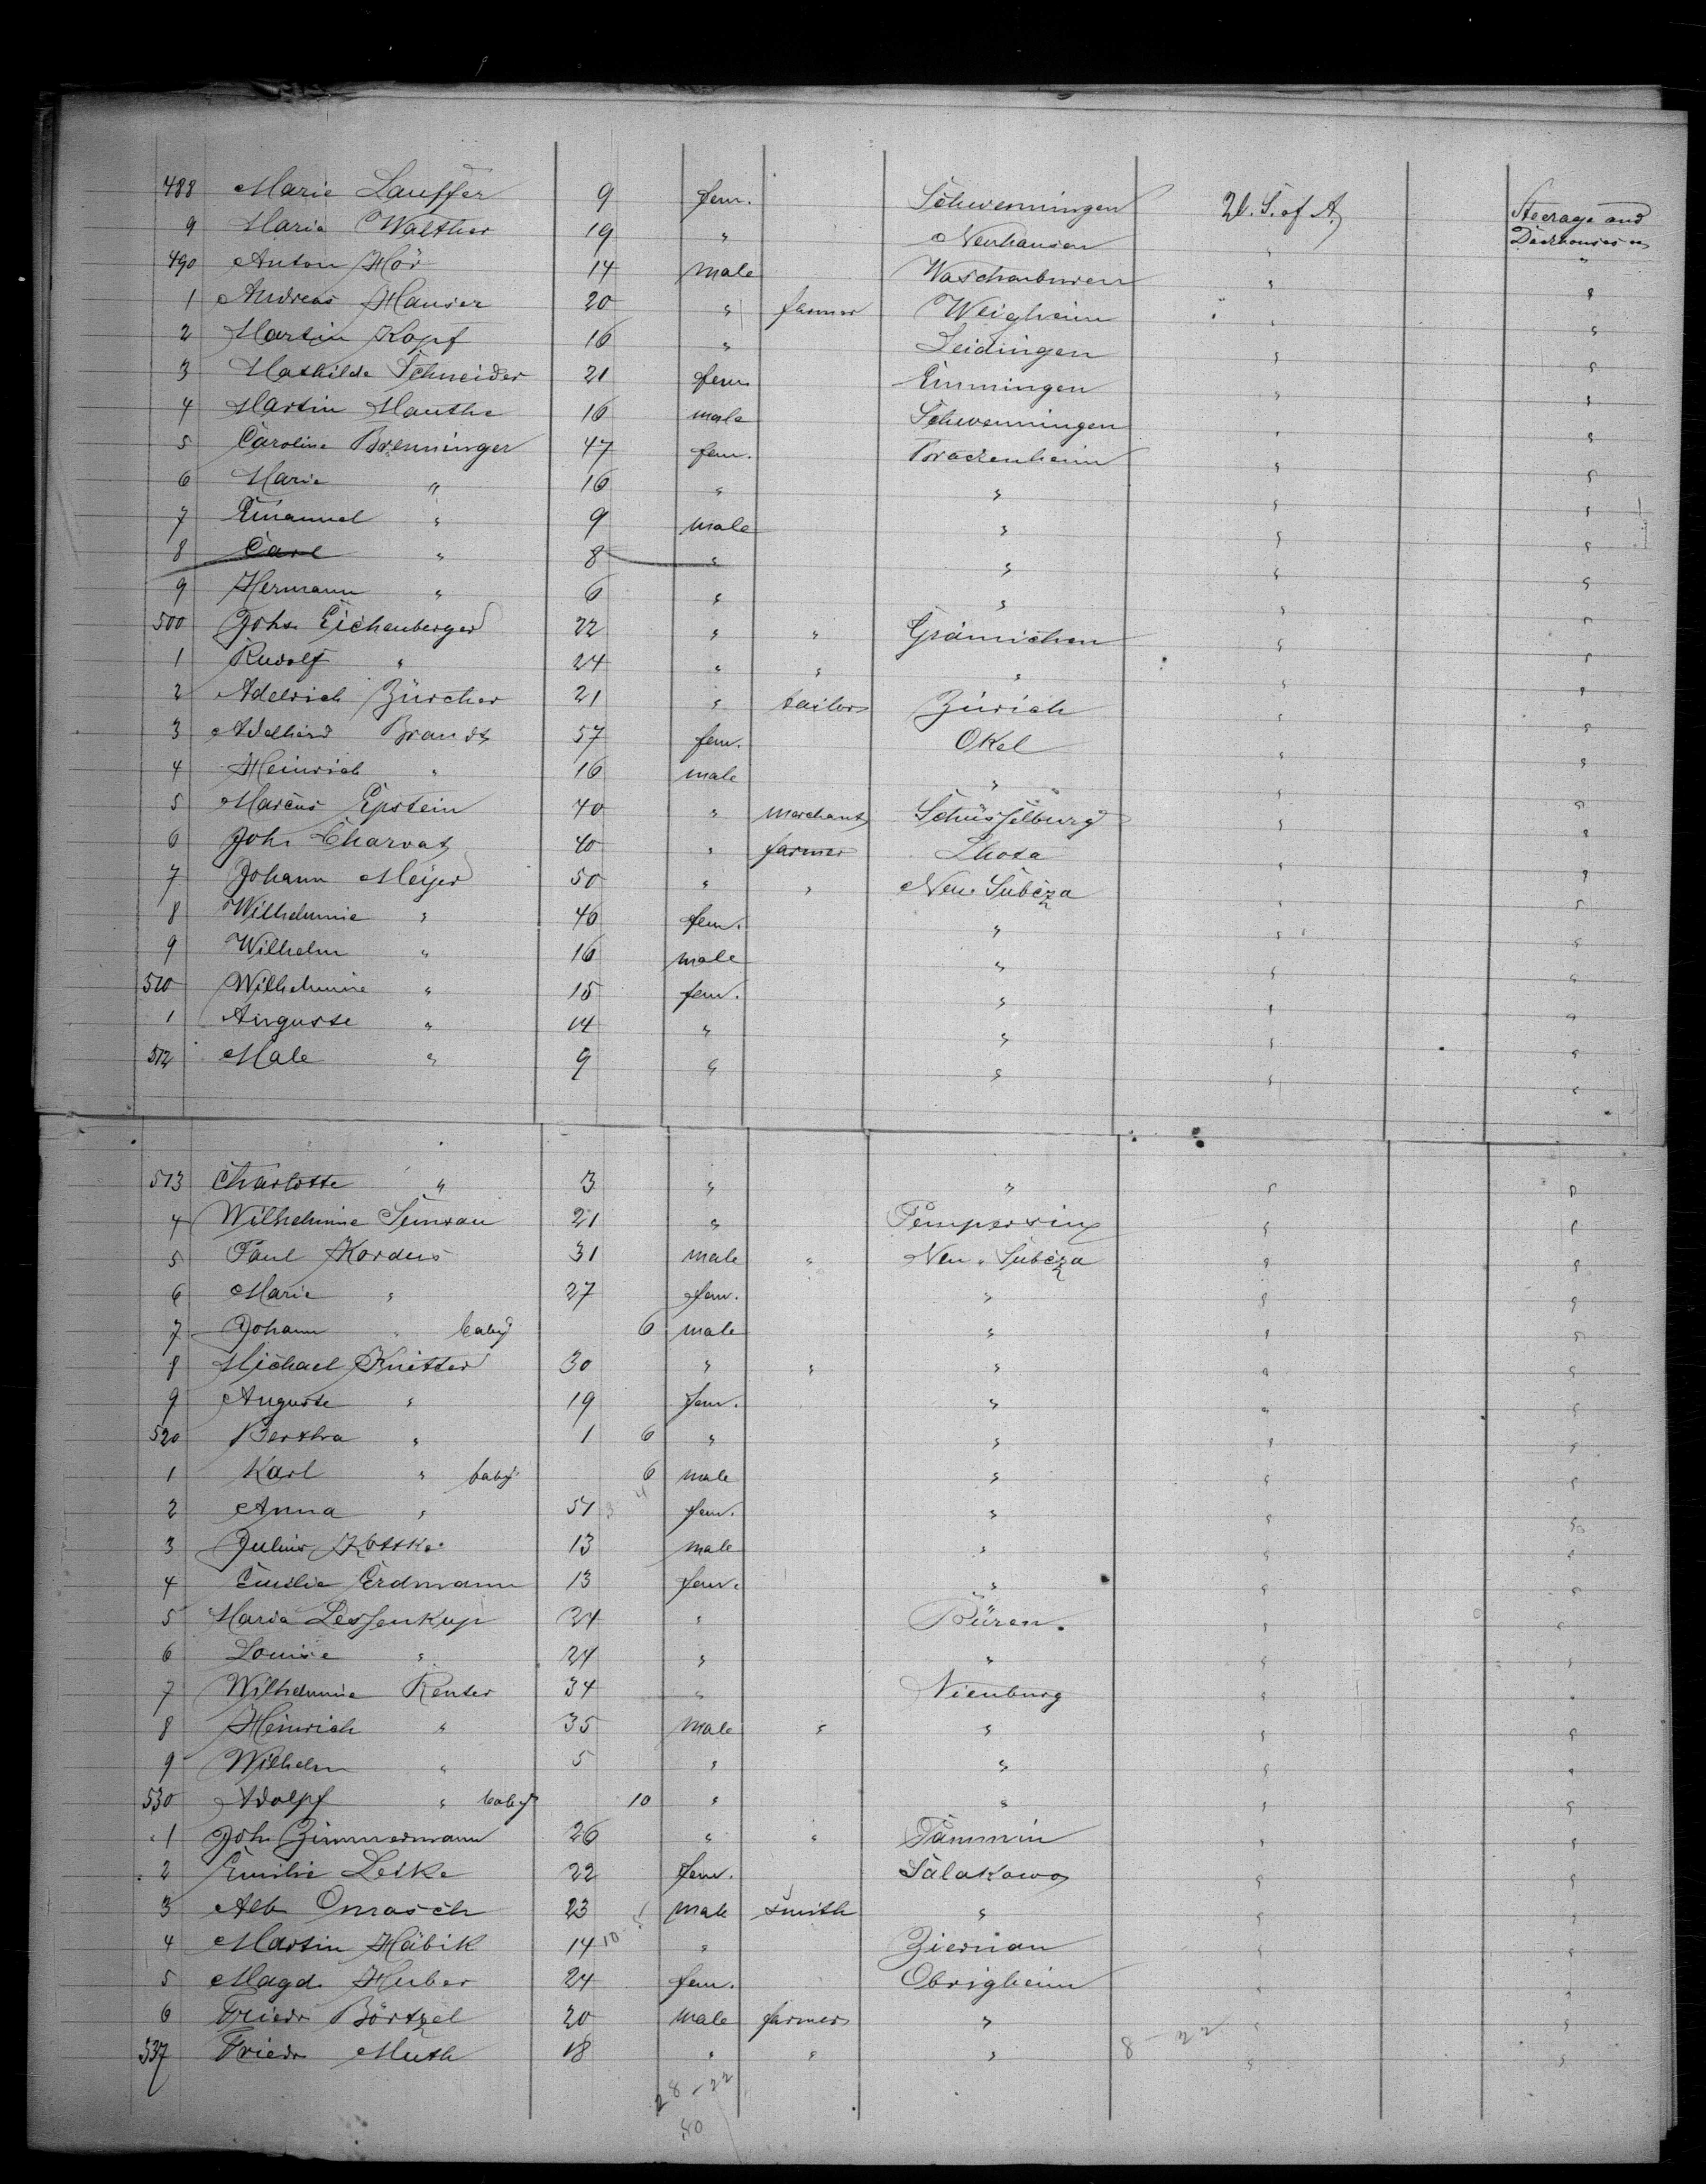 488 Marie Lauffer 9 fem. Schwenningen U. S. of A. Steerage and
9 Maria Walther 19 " Neuhausen " Deckhouses
490 Anton Hör 14 male Waschenbeuren " "
1 Andreas Hauser 20 " farmer Weigheim " "
2 Martin Kopf 16 " Leidingen " "
3 Mathilde Schneider 21 fem. Emmingen " "
4 Martin Mauthe 16 male Schwenningen " "
5 Caroline Brenninger 47 fem. Brackenheim " "
6 Marie " 16 " " " "
7 Emanuel " 9 male " " "
8 Carl " 8 " " " "
9 Hermann " 6 " " " "
500 Johs. Eichenberger 22 " " Gränichen " "
1 Rudolf " 24 " " " " "
2 Adelrich Zürcher 21 " tailor Zürich " "
3 Adelheid Brandt 57 fem. Okel " "
4 Heinrich " 16 male " " "
5 Marcus Epstein 40 " merchant Schüsselburg " "
6 Joh. Charvat 40 " farmer Lhota " "
7 Johann Meijer 50 " " Neu Subcza " "
8 Wilhelmine " 46 fem. " " "
9 Wilhelm " 16 male " " "
510 Wilhelmine " 15 fem. " " "
1 Auguste " 14 " " " "
512 Male " 9 " " " "
513 Charlotte " 3 " " " "
4 Wilhelmine 21 " " "
5 Paul Kordus 31 male " Neu Subcza " "
6 Marie " 27 fem. " " "
7 Johann " baby 6 male " " "
8 Michael Knitter 30 " " " " "
9 Auguste " 19 fem. " " "
520 Bertha " 1 6 " " " "
1 Karl " baby 6 male " " "
2 Anna " 51 fem. " " "
3 Julius 13 male " " "
4 Emilie Erdmann 13 fem. " " "
5 Maria Lessenkop 34 " Büren. " "
6 Louise " 24 " " " "
7 Wilhelmine Reuter 34 " Nienburg " "
8 Heinrich " 35 male " " " "
9 Wilhelm " 5 " " " "
530 Adolpf " baby 10 " " " "
1 Joh. Zimmermann 26 " " Tammin " "
2 Emilie Leike 22 fem. Salakowo " "
3 Alb. Onrasch 23 male smith " " "
4 Martin Häbik 14 " Ziernau " "
5 Magd. Huber 24 fem. Obrigheim " "
6 Friedr. Börtzel 20 male farmer " " "
537 Friedr. Muth 18 " " " " "
8 - 22
28 - 22